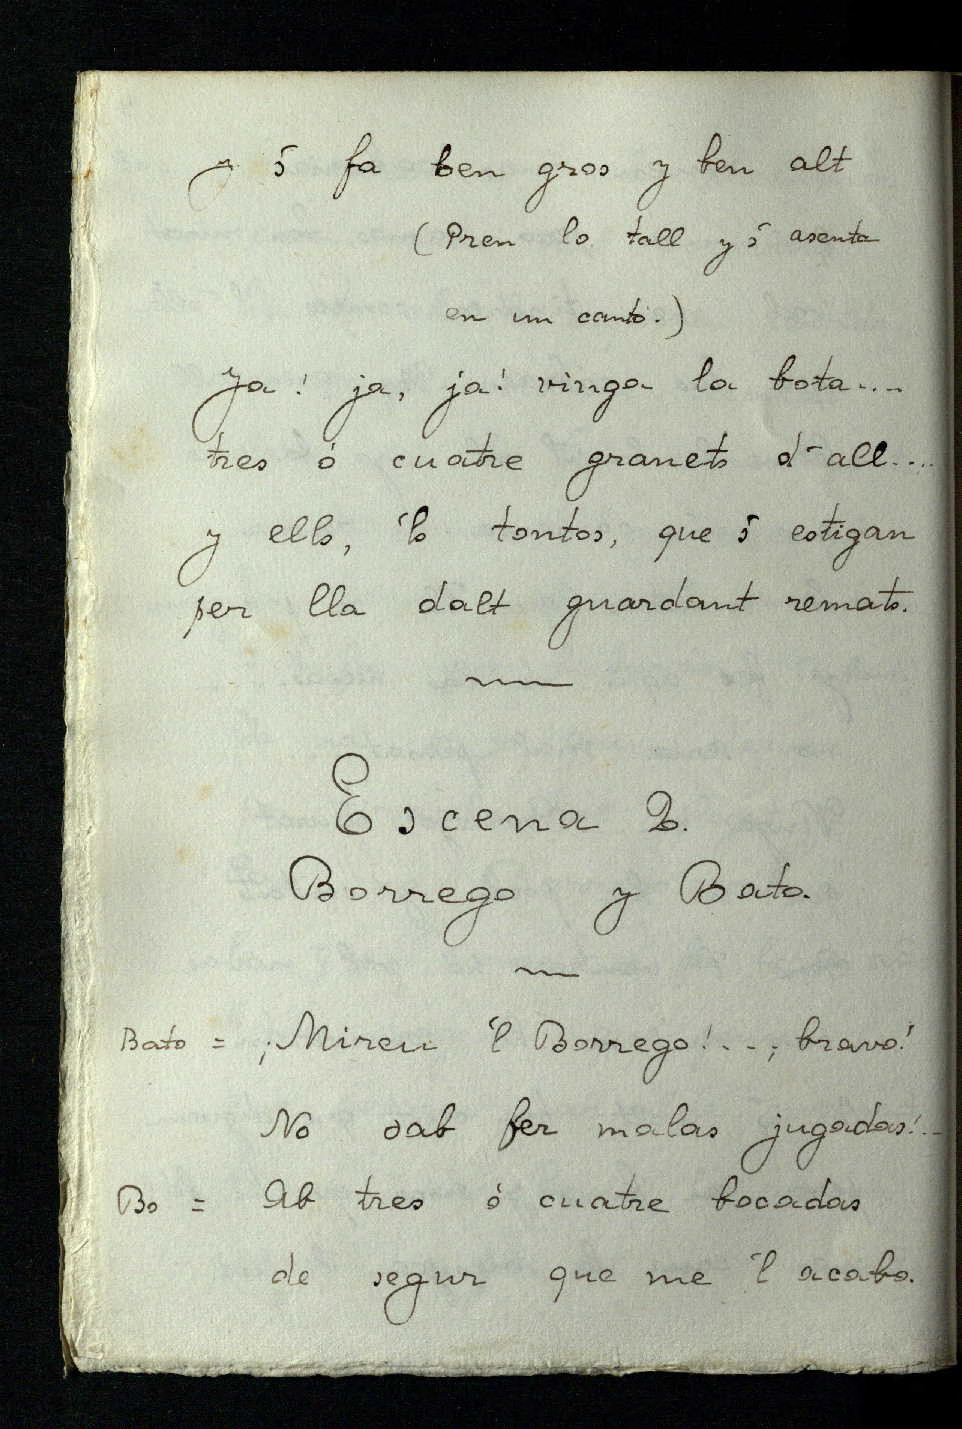 y 's fa ben gros y ben alt
(Pren lo tall y 's asenta
en un cantó.)
Ja! ja, ja! vinga la bota....
tres ó cuatre granets d'all....
y ells, 'ls tontos, que 's estigan
per lla dalt guardant remats.
Escena 2.
Borrego y Bato.
Bato = ¡Miren 'l Borrego!...¡bravo!
No sab fer malas jugadas!..
Bo = Ab tres ó cuatre bocadas
de segur que me 'l acabo.